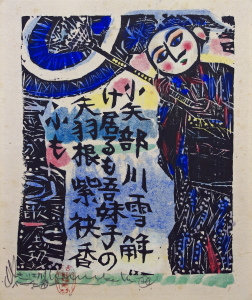 小矢部川雪解
け居るも吾妹子の
矢羽根紫袂香
も